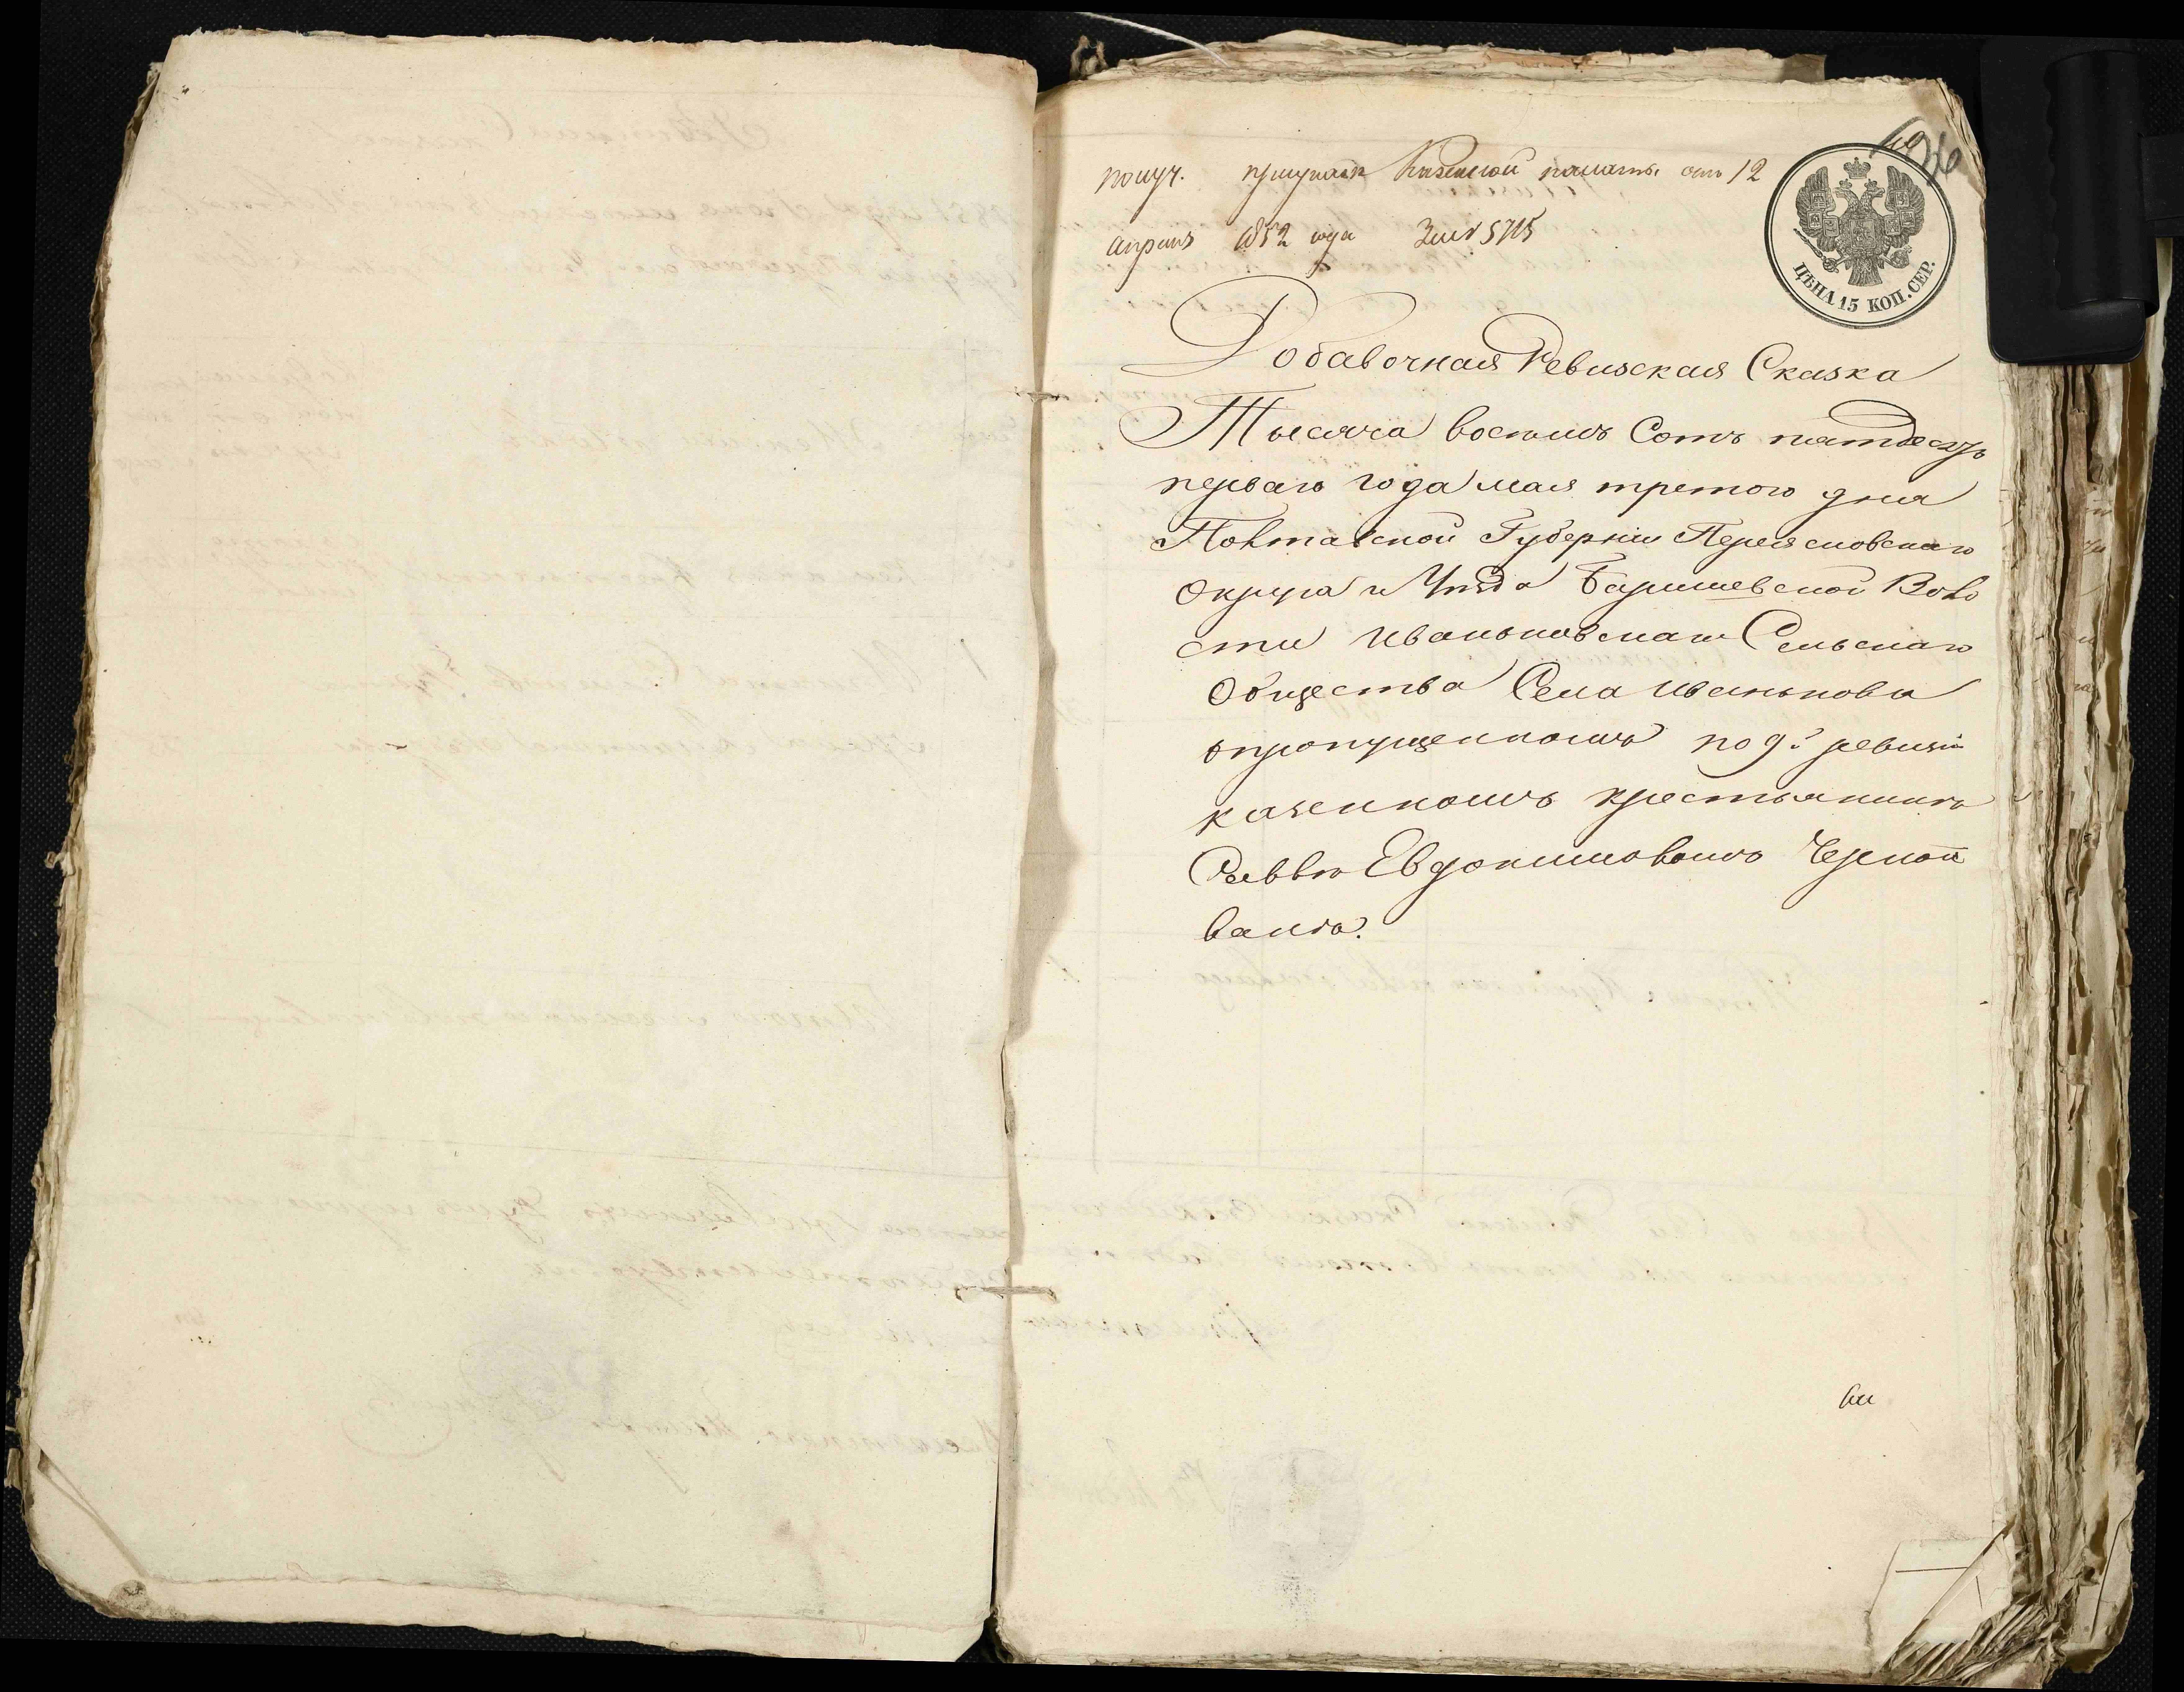 получ. при указе Казенной палаты от 12
апреля 1852 года За № 5715
ЦѢНА 15 КОП. СЕР.
Добавочная Ревизская Сказка
Тысяча восемь Сотъ пятдесятъ
перваго года мая третого дня
Полтавской Губерніи Переясловскаго
Округа и Уезда Баришевской Воло
сти Иваньковскаго Сельскаго
Общества Села Иванькова
опропущенномъ по 9й ревизіи
казенномъ крестьянинѣ
Саввѣ Евдокимовомъ Чернои
ванѣ.